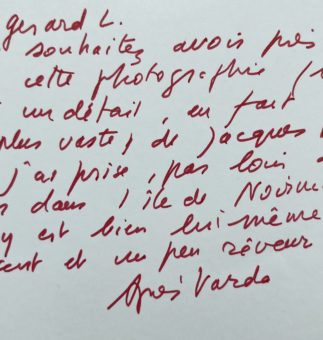 gerard L.
souhaitez avoir près
cette photographie
un détail, en fait
plus vaste, de Jacques
j'ai prise, pas loin
dans l'île de Noirm
y est bien lui même
et un peu rêveur
Agnès Varda